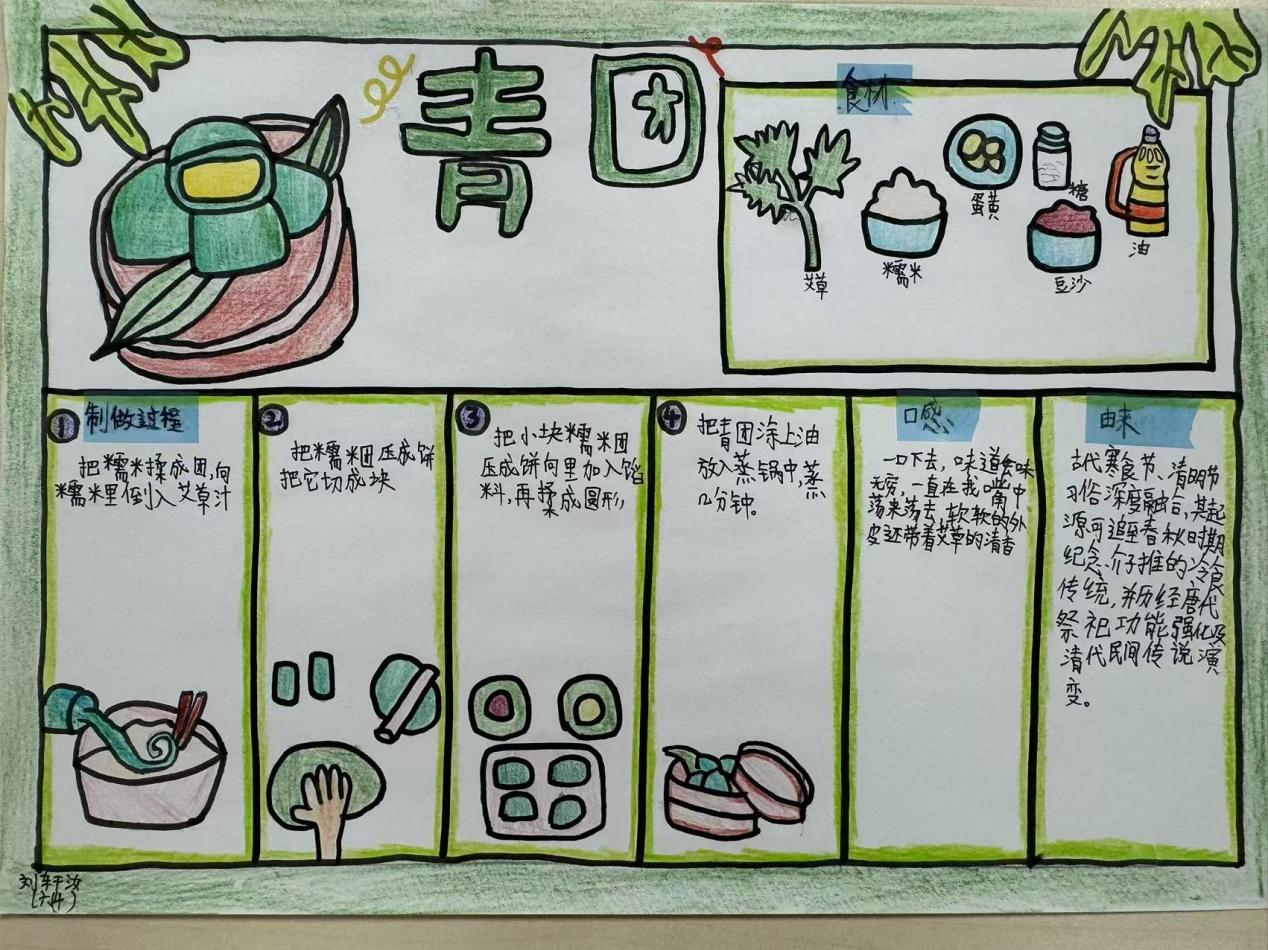 青团
食材
艾草
糯米
蛋黄
糖
豆沙
油
① 制做过程
把糯米揉成团,向
糯米里倒入艾草汁
②
把糯米团压成饼
把它切成块
③
把小块糯米团
压成饼向里加入馅
料,再揉成圆形,
④
把青团涂上油
放入蒸锅中,蒸
几分钟。
口感
一口下去,味道美味
无穷,一直在我嘴角中
荡来荡去,软软的外
皮还带着艾草的清香
由来
古代寒食节、清明节
习俗深度融合,其起
源可追至春秋时期
纪念介子推的冷食
传统,并历经唐代
祭祀功能强化及
清代民间传说演
变。
刘轩汝